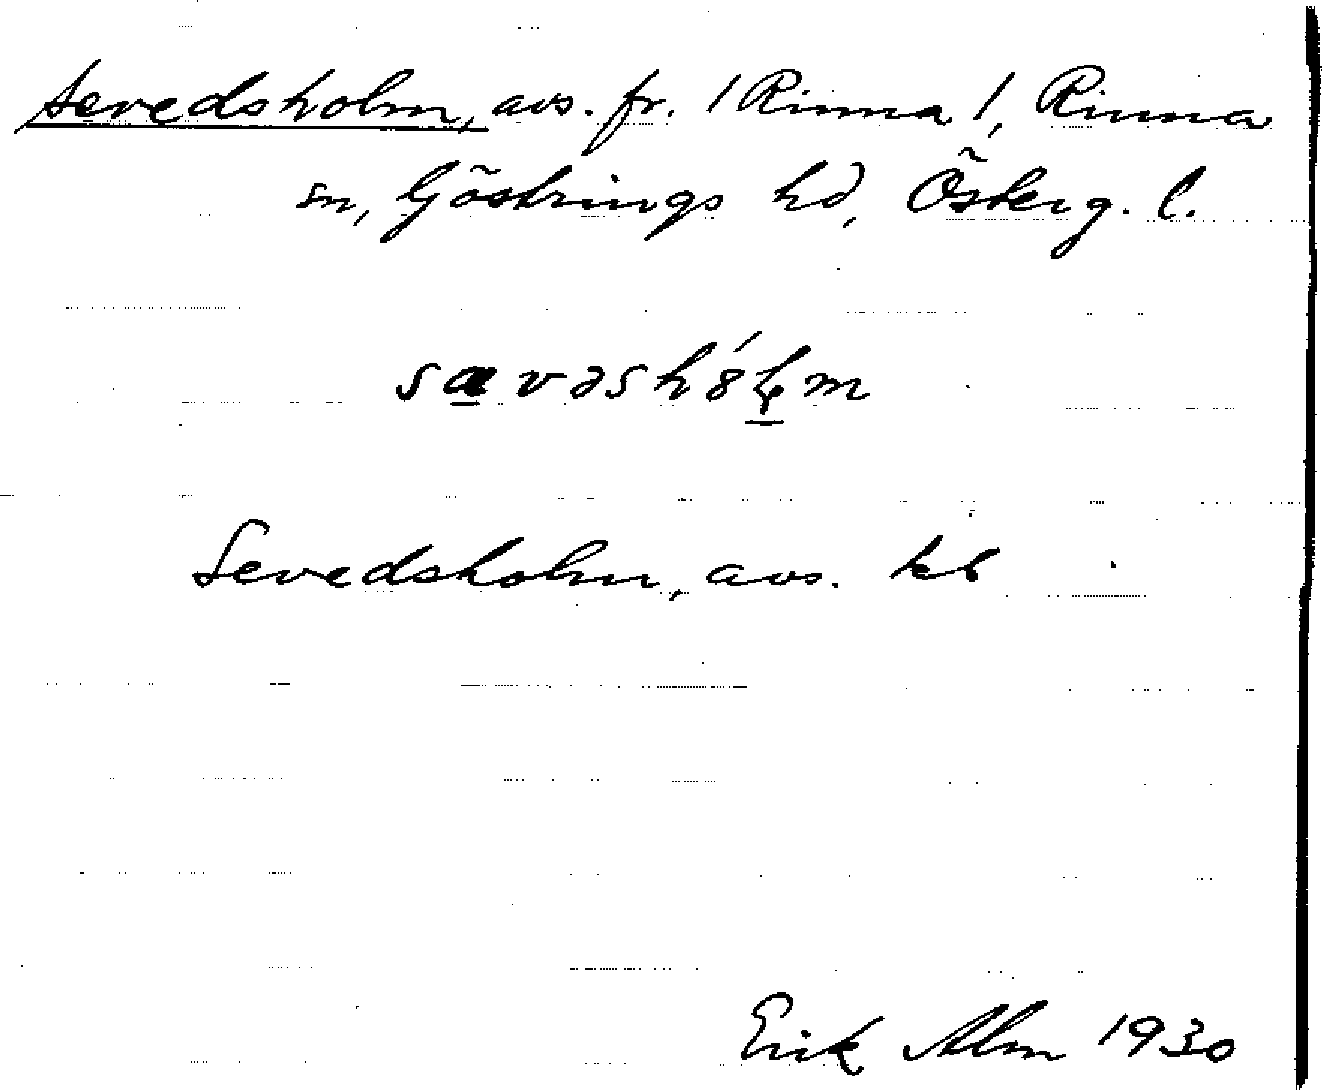 Sevedsholm, avs. fr. /Rinna/, Rinna
sn, Göstrings hd, Österg. l.
sævəshȣ́ļm
Sevedsholm, avs. kb
Erik Alm 1930